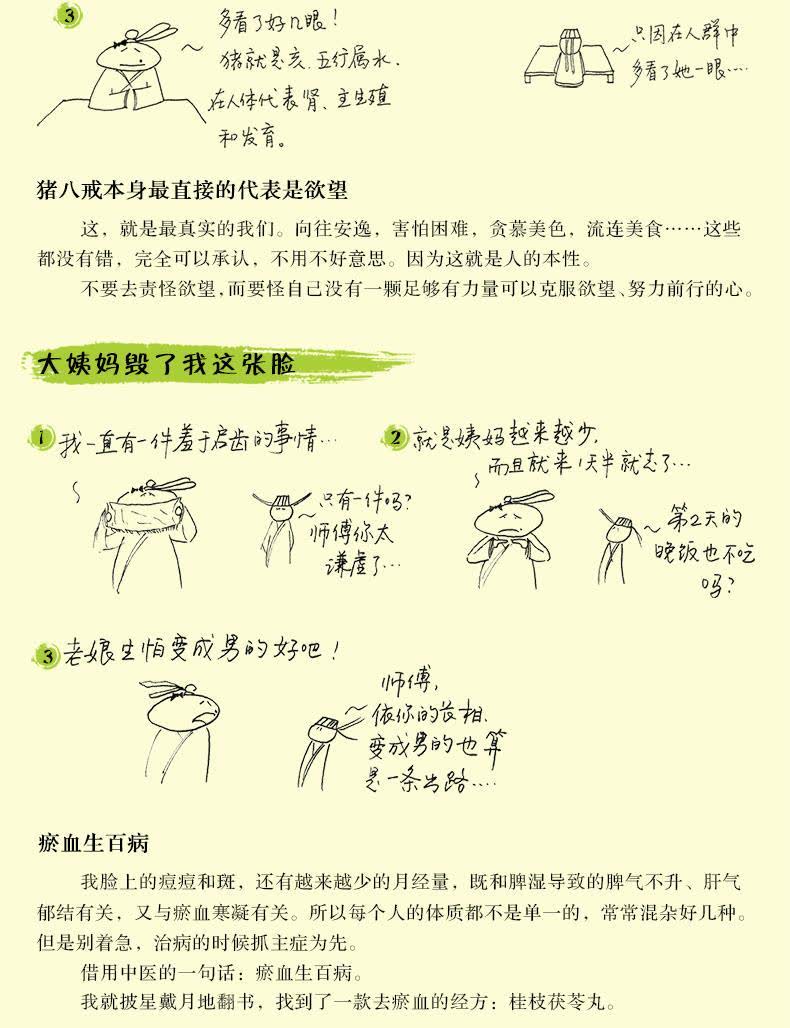 3
多看了好几眼！
猪就是亥，五行属水，
在人体代表肾、主生殖
和发育。
只因在人群中
多看了她一眼…
猪八戒本身最直接的代表是欲望
这，就是最真实的我们。向往安逸，害怕困难，贪慕美色，流连美食……这些
都没有错，完全可以承认，不用不好意思。因为这就是人的本性。
不要去责怪欲望，而要怪自己没有一颗足够有力量可以克服欲望、努力前行的心。
大姨妈毁了我这张脸
1
我一直有一件羞于启齿的事情…
只有一件吗？
师傅你太
谦虚了…
2
就是姨妈越来越少，
而且就来1天半就走了…
第2天的
晚饭也不吃
吗？
3
老娘生怕变成男的好吧！
师傅，
依你的长相，
变成男的也算
是一条出路…
瘀血生百病
我脸上的痘痘和斑，还有越来越少的月经量，既和脾湿导致的脾气不升、肝气
郁结有关，又与瘀血寒凝有关。所以每个人的体质都不是单一的，常常混杂好几种。
但是别着急，治病的时候抓主症为先。
借用中医的一句话：瘀血生百病。
我就披星戴月地翻书，找到了一款去瘀血的经方：桂枝茯苓丸。